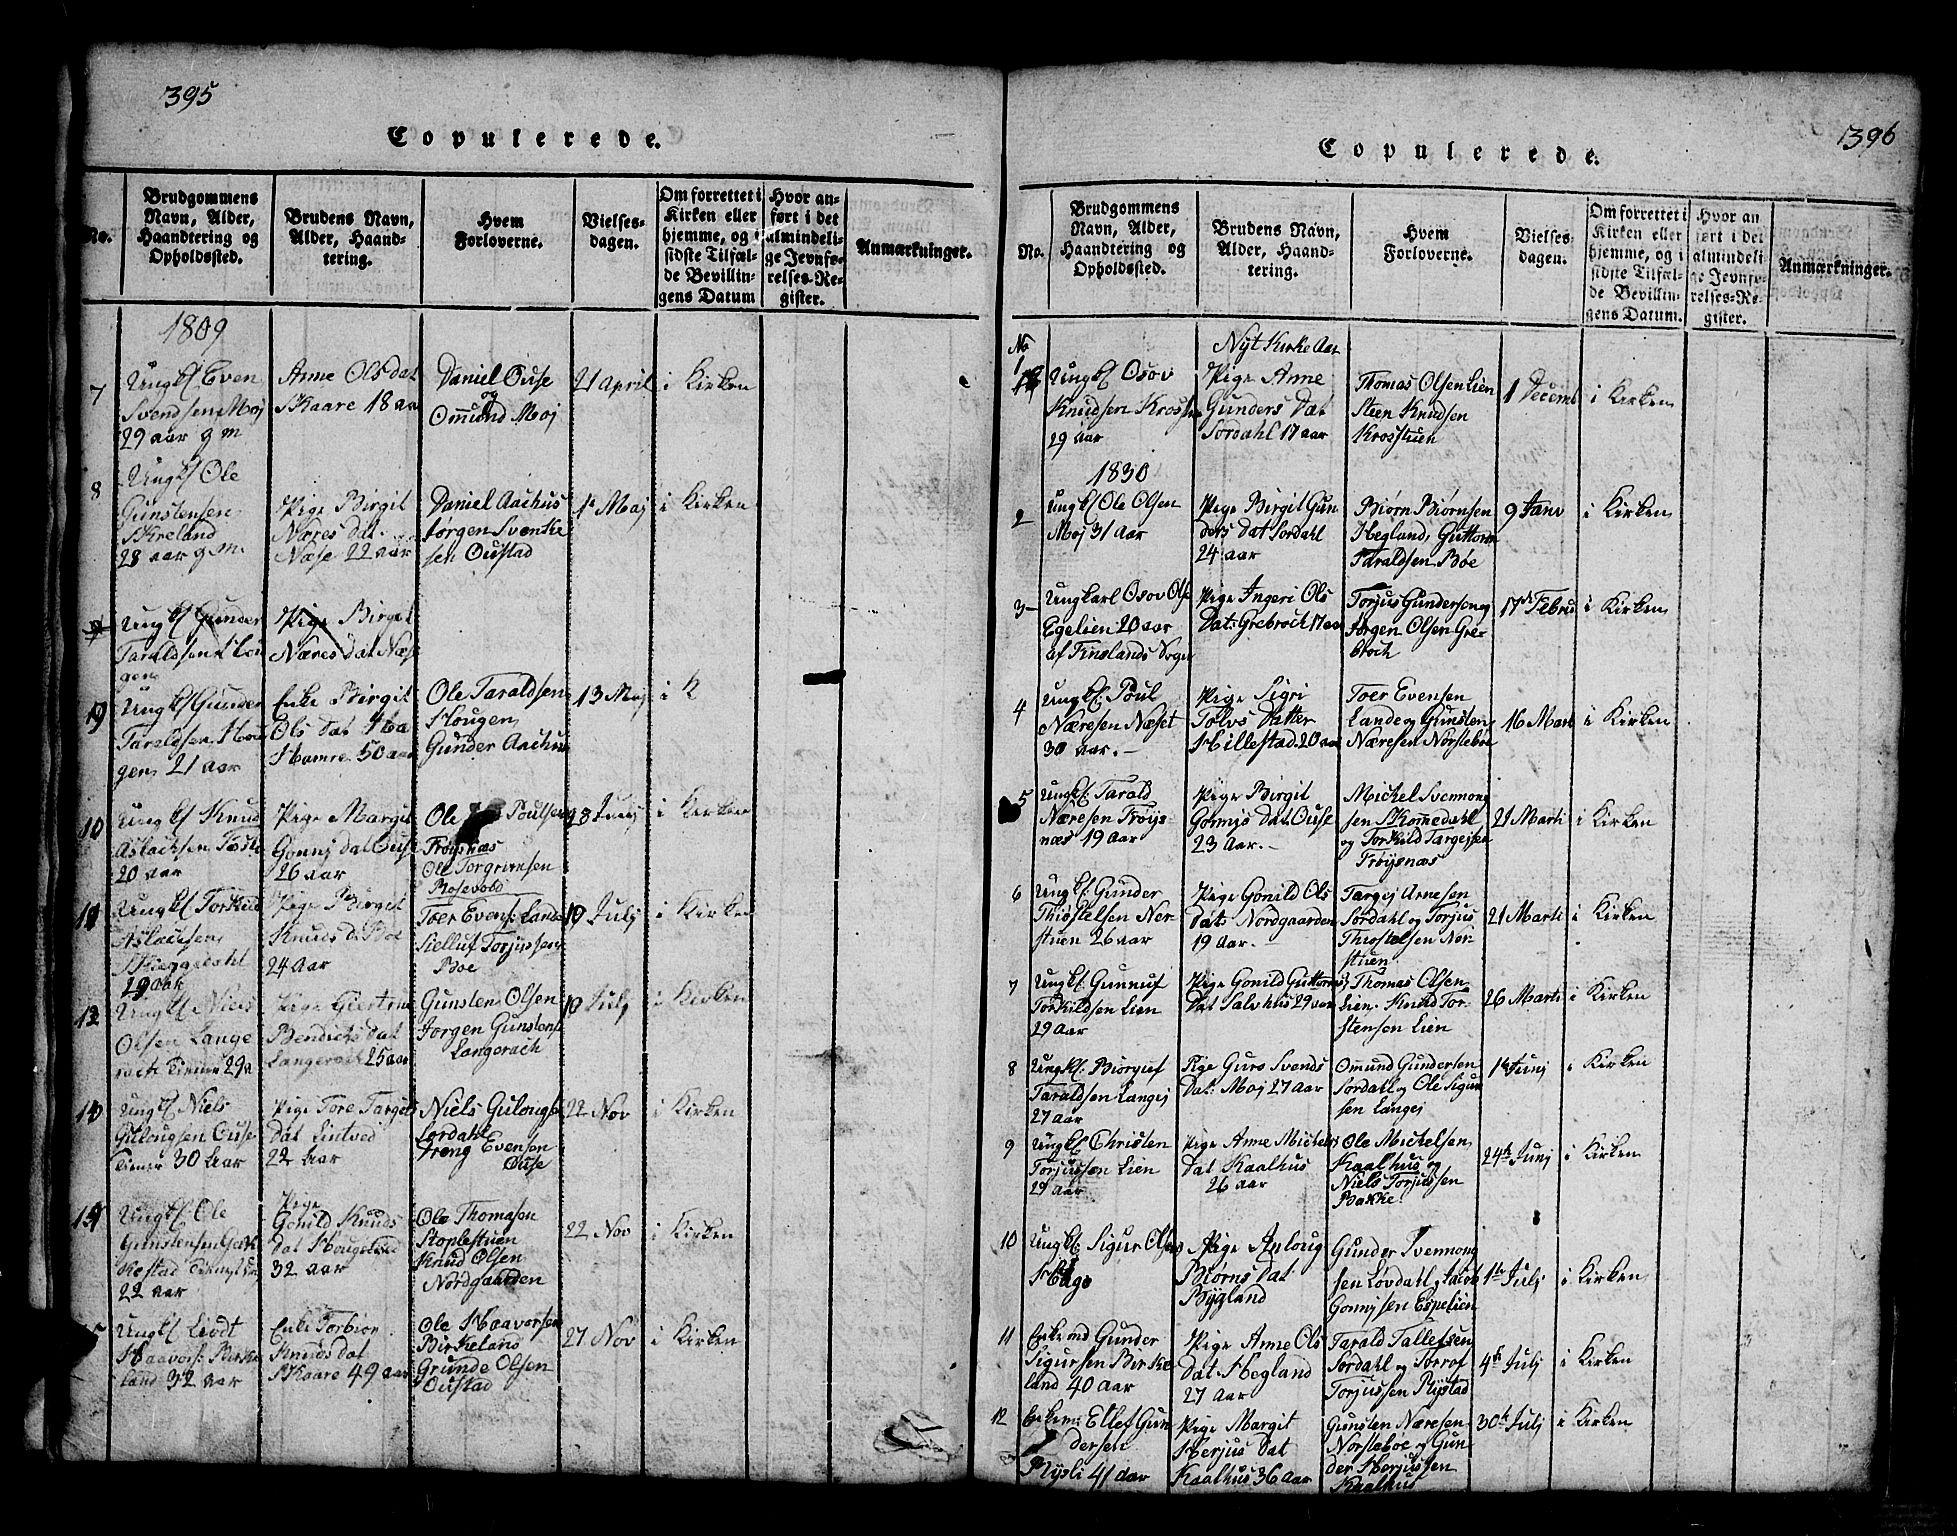 395
Copulerede.
No.
Brudgommens Navn, Alder, Haandtering og Opholdssted.
Brudens Navn, Alder, Haandtering.
Hvem Forloverne.
Vielsesdagen.
Om forrettet i Kirken eller hjemme, og i sidste Tilfælde Bevillingens Datum
Hvor anført i det almindelige Jevnførelses-Register.
Anmærkninger.
1809
7
Ungkl Even
Svendsen Moj
29 aar g m
Anne Olsdat
Skaare 18 aar
Daniel Ouse
og
Ommund Moj
21 April
i Kirken
8
Ungkl Ole
Gunstensen
Skreland
28 aar g m
Pige Birgit
Næres Dat.
Næse 22 aar
Daniel Aachus
Jørgen Svenke
sen Oustad
1 Maj
i Kirken
Ungkl Gunder
Taraldsen Hou
gen
Pige Birgit
Næres dat Næse
Ungkl Gunder
Taraldsen Hou
gen 21 aar
Enke Birgit
Ols Dat
Hamre 50 aar
Ole Taraldsen
Hougen
Gunder Aachus
13 Maj
i K
10
Ungkl Knud
Aslachsen
20 aar
Pige Margit
Gonnj dat Ouse
26 aar
Ole Poulsen
Frøysnæs
Ole Torgrimsen
Rosevold
i Kirken
Ungkl Torkild
Aslacksen
Skjeggedahl
29 aar
Pige Birgit
Knuds d. Boe
24 Aar
Toer Evens: Lande
Sielluf Torjussen
Boe
19 Julj
i Kirken
Ungkl Niels
Olsen Lange
rach 29 a
Pige
Bendicts Dat
Langerach 25 aar
Gunsten Olsen
Jorgen Gunstens
Langerach
19 Julj
i Kirken
Ungkl Niels
Gulougsen Ouse
30 aar
Pige Tore Targes
Dat Lintved
22 aar
Niels Gulougs
Lordahl
Dreng Evensen
Ouse
22 Nov
i Kirken
Ungkl Ole
Gunstensen
22 aar
Pige
Gonild Knuds
Dat Hougeland
32 aar
Ole Thomasen
Stoplestuen
Knud Olsen
Nordgaarden
22 Nov
i Kirken
Ungkl Livdt
Haavors: Birke
land 32 aar
Enke Torbior
Knudsdat
Skaare 49 aar
Ole Haavorsen
Birkeland
Grunde Olsen
Oustad
27 Nov
i Kirken
396
Copulerede.
No.
Brudgommens Navn, Alder, Haandtering og Opholdssted.
Brudens Navn, Alder, Haandtering.
Hvem Forloverne.
Vielsesdagen.
Om forrettet i Kirken eller hjemme, og i sidste Tilfælde Bevillingens Datum.
Hvor anført i det almindelige Jevnførelses-Register.
Anmærkninger.
No
Nyt Kirke Aar
1
Ungkl Osov
Knudsen Krosstu
29 aar
Pige Anne
Gunders Dat
Sordahl 17 aar
Thomas Olsen Lien
Steen Knudsen
Krosstuen
1 Decemb
i Kirken
1830
2
Ungkl Ole Olsen
Moj 31 Aar
Pige Birgit Gun
ders Dat Sordahl
24 aar
Biørn Biørnsen
Hegland, Guttorm
Taraldsen Bøe
9 Janv
i Kirken
3
Ungkarl Osov Olse
Egelien 20 aar
af Finslands Sogn
Pige Ingeri Ols
Dat: Grebroch 17 aar
Torjus Gundersen og
Jørgen Olsen Gre-
broch
17 Febru
i Kirken
4
Ungkl: Poul
Næresen Næset
30 aar.
Pige Sigri
Tolvs Datter
Hillestad 20 aar
Toer Evensen
Lande og Gunsten
Næresen Norstebøe
16 Marti
i Kirken
5
Ungkl: Tarald
Næresen Frøys
næs 19 Aar
Pige Birgit
Gonnys Dat Ouse
23 Aar.
Michel Svennung
sen Skomedahl
og Torkild Targejsen
Frøysnæs
21 Marti
i Kirken
6
Ungkl: Gunder
Thiostelsen Nor
stuen 26 aar
Pige Gonild Ols
Dat: Nordgaarden
19 Aar.
Targej Arnesen
Sordahl og Torjus
Thiostelsen Nor-
stuen
21 Marti
i Kirken
7
Ungkl: Gunnuf
Torkildsen Lien
29 Aar
Pige Gonild Guttorms
Dat Salvhus 29 aar
Thomas Olsen
Lien. Knud Tor-
stensen Lien
26 Marti
i Kirken
8
Ungkl: Biorguf
Taraldsen Langej
27 Aar
Pige Guro Svends
Dat: Moj 27 Aar
Omund Gundersen
Sordahl og Ole Sigur
sen Langej
1 Junj
i Kirken
9
Ungkl: Christen
Torjussen Lien
29 aar
Pige Anne Michels
Dat Kaalhus
26 aar
Ole Michelsen
Kaalhus og
Niels Torjussen
Bakke
24 Junj
i Kirken
10
Ungkl: Sigur Olsen
Pige Asloug
Biørns Dat
Bygland
Gunder Svennong
sen Lovdahl, Jacob
Gonnysen Espelien
1te Julj
i Kirken
11
Enkemd Gunder
Sigursen Birke
land 40 Aar
Pige Anne Ols
Dat Hegland
27 Aar
Tarald Tallefsen
Sordahl og
Torjussen Rystad
4 Julj
i Kirken
12
Enkem: Ellef Gun
dersen
Rysli 41 aar
Pige Margit
Herjus Dat
Kaalhus 36 Aar
Gunsten Næresen
Norstebøe og Gun
der Herjussen
Kaalhus
30 Julj
i Kirken